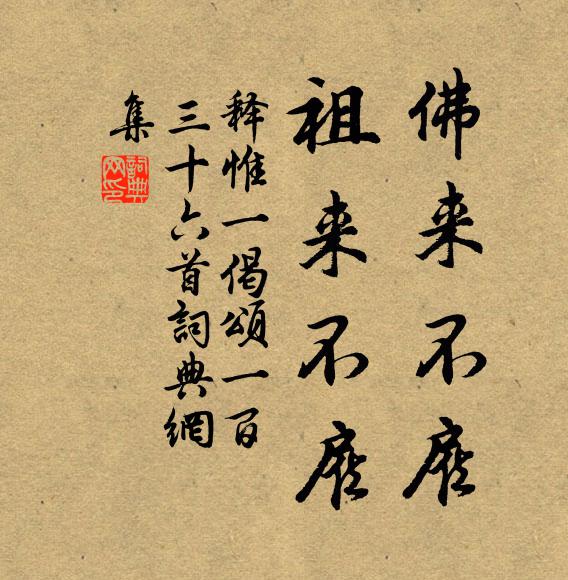 佛来不應
祖来不應
釋惟一偈頌一百
三十六首詞典網
集
詞典
网印